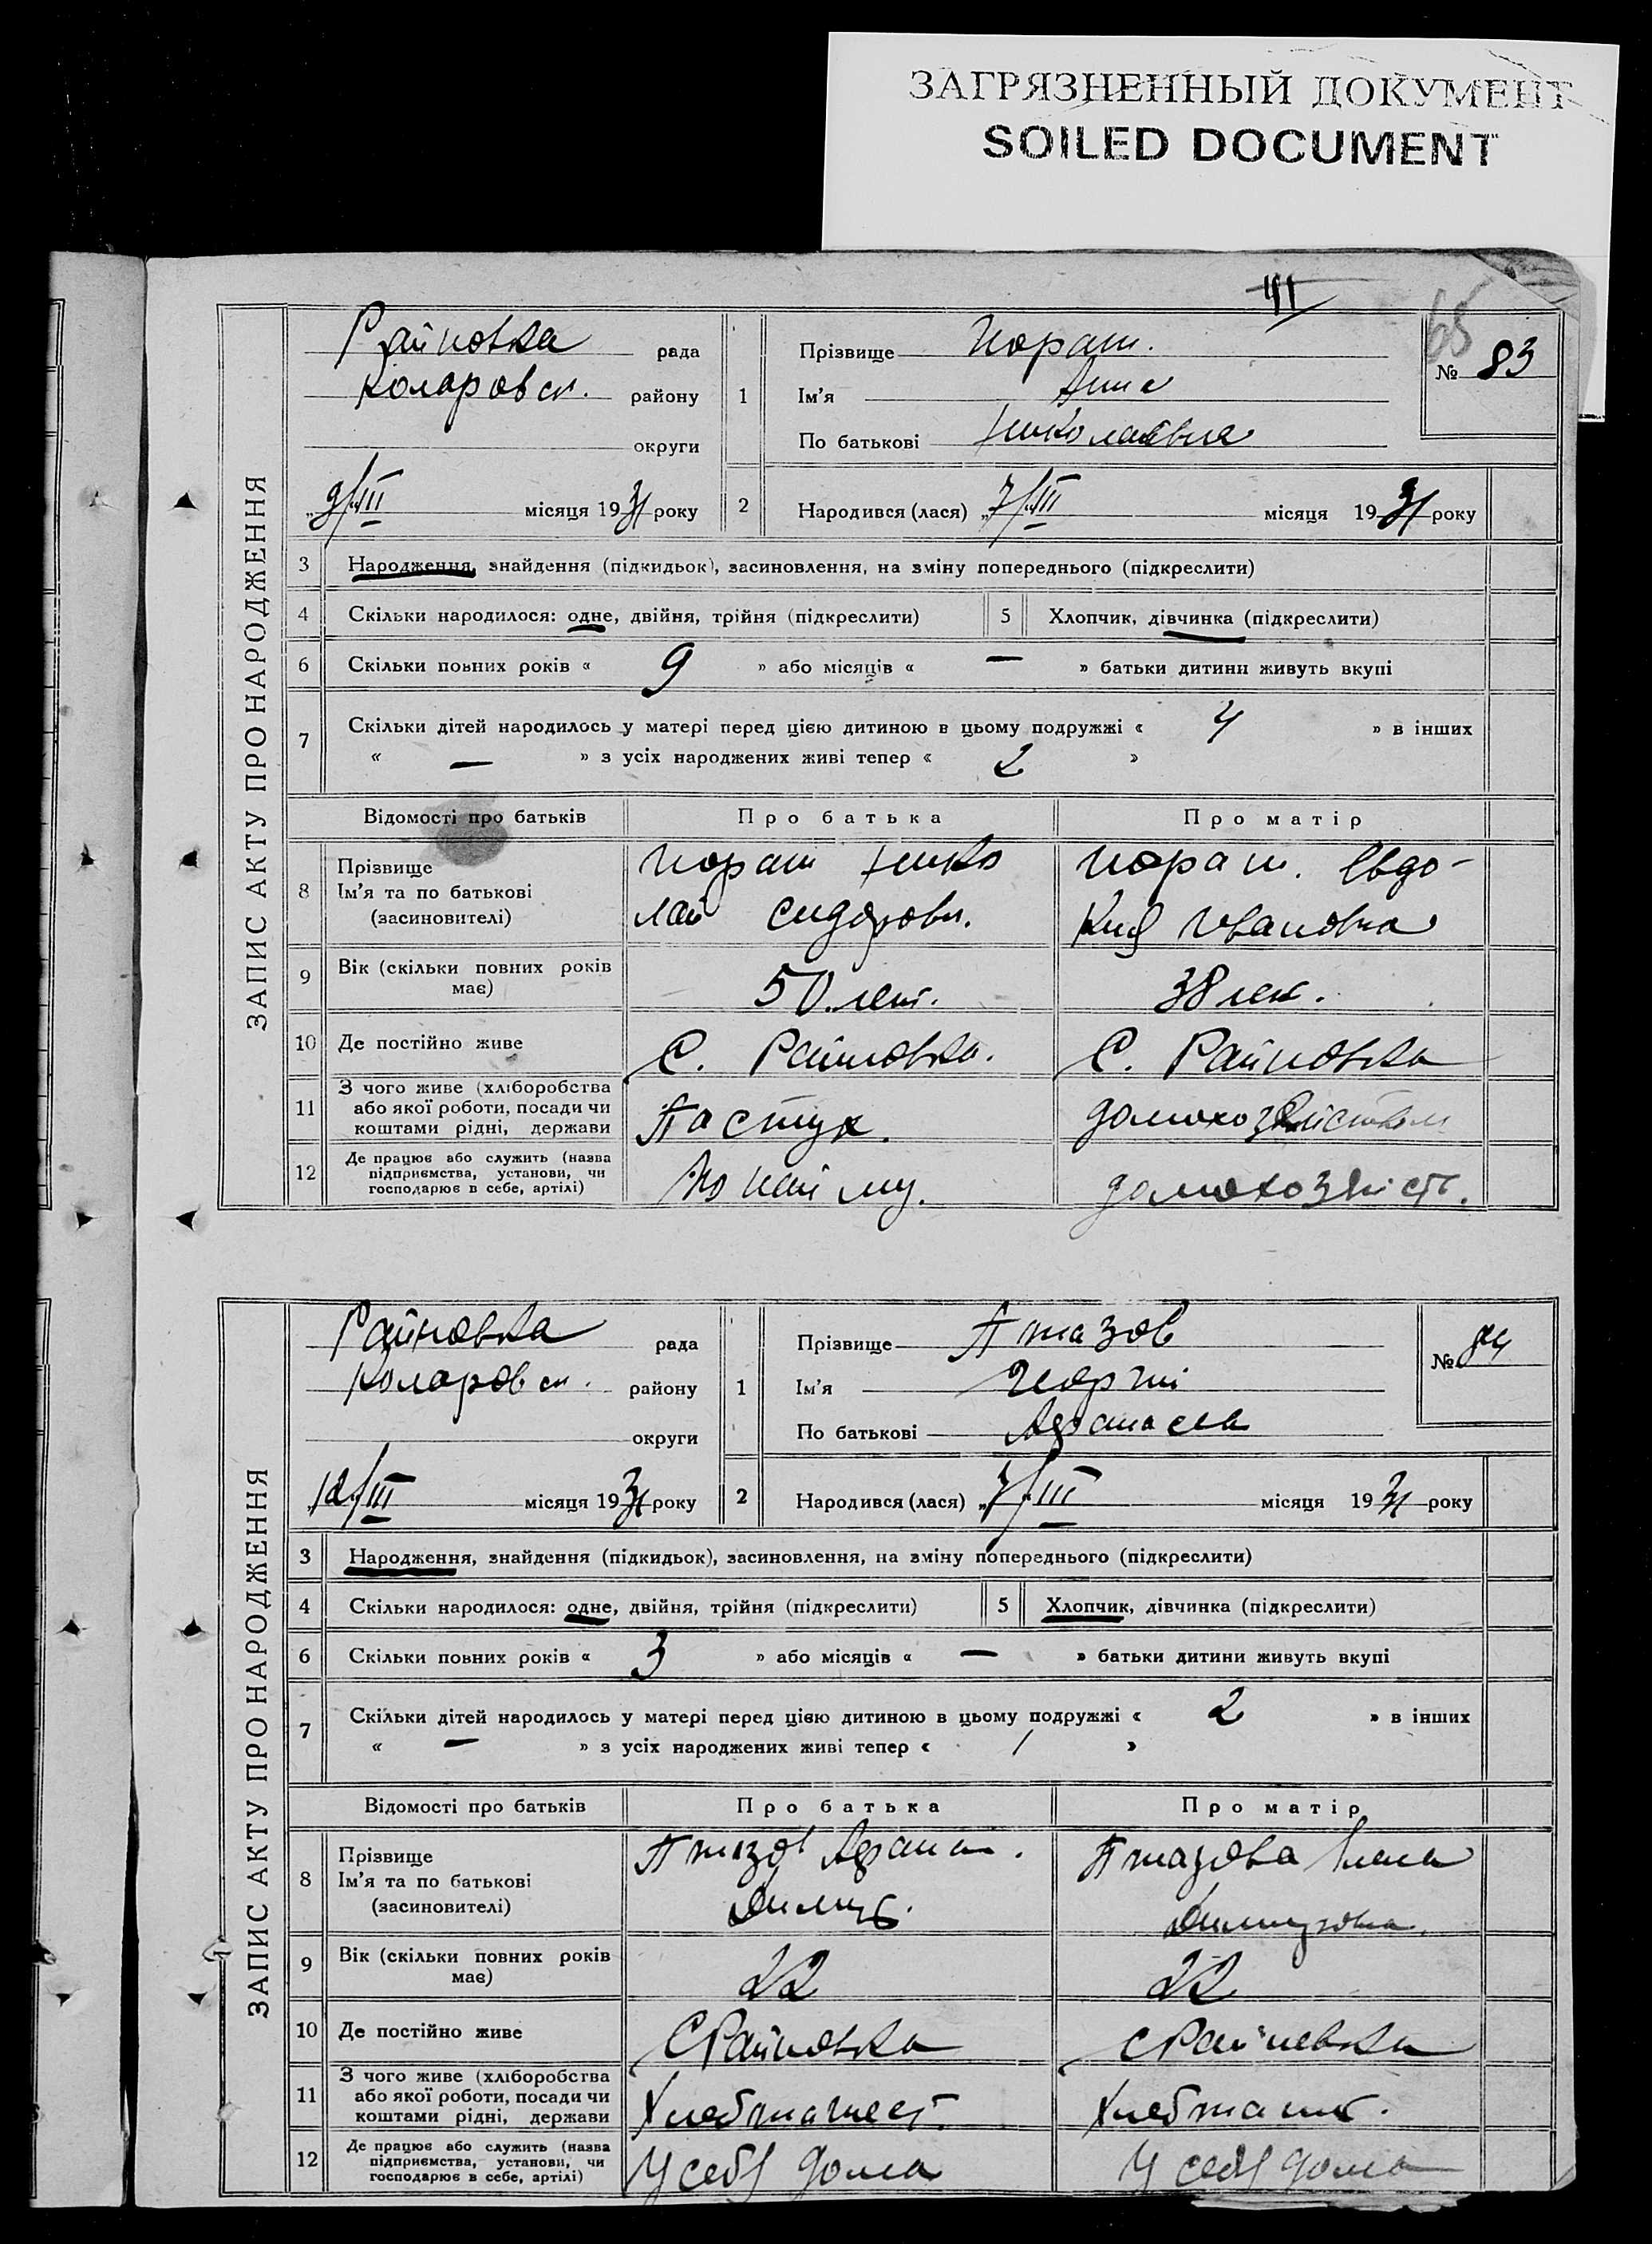 ЗАГРЯЗНЕННЫЙ ДОКУМЕНТ
SOILED DOCUMENT
65
ЗАПИС АКТУ ПРО НАРОДЖЕННЯ
Райновка рада
Коларовск. району
округи
„9/III місяця 1931 року
1 Прізвище
Ім'я Анна
По батькові Николаевна
№ 83
2 Народився (лася) „7/III місяця 1931 року
3 Народження, знайдення (підкидьок), засиновлення, на зміну попереднього (підкреслити)
4 Скільки народилося: одне, двійня, трійня (підкреслити) 5 Хлопчик, дівчинка (підкреслити)
6 Скільки повних років « 9 » або місяців « — » батьки дитини живуть вкупі
7 Скільки дітей народилось у матері перед цією дитиною в цьому подружжі « 4 » в інших
« — » з усіх народжених живі тепер « 2 »
Відомості про батьків Про батька Про матір
8 Прізвище
Ім'я та по батькові
(засиновителі)
Нико
лай Сидоров.
Евдо-
кия Ивановна
9 Вік (скільки повних років
має) 50 лет. 38 лет.
10 Де постійно живе С. Райновка. С. Райновка
11 З чого живе (хліборобства
або якої роботи, посади чи
коштами рідні, держави
Пастух.
12 Де працює або служить (назва
підприємства, установи, чи
господарює в себе, артілі)
По найму. домохозяйств.
ЗАПИС АКТУ ПРО НАРОДЖЕННЯ
Райновка рада
Коларовск. району
округи
„12/III місяця 1931 року
1 Прізвище Атмазов
Ім'я Георгий
По батькові
№ 84
2 Народився (лася) „7/III місяця 1931 року
3 Народження, знайдення (підкидьок), засиновлення, на зміну попереднього (підкреслити)
4 Скільки народилося: одне, двійня, трійня (підкреслити) 5 Хлопчик, дівчинка (підкреслити)
6 Скільки повних років « 3 » або місяців « — » батьки дитини живуть вкупі
7 Скільки дітей народилось у матері перед цією дитиною в цьому подружжі « 2 » в інших
« — » з усіх народжених живі тепер « 1 »
Відомості про батьків Про батька Про матір
8 Прізвище
Ім'я та по батькові
(засиновителі)
9 Вік (скільки повних років
має) 22 22
10 Де постійно живе С Райновка с Райновка
11 З чого живе (хліборобства
або якої роботи, посади чи
коштами рідні, держави
12 Де працює або служить (назва
підприємства, установи, чи
господарює в себе, артілі)
У себя дома У себя дома